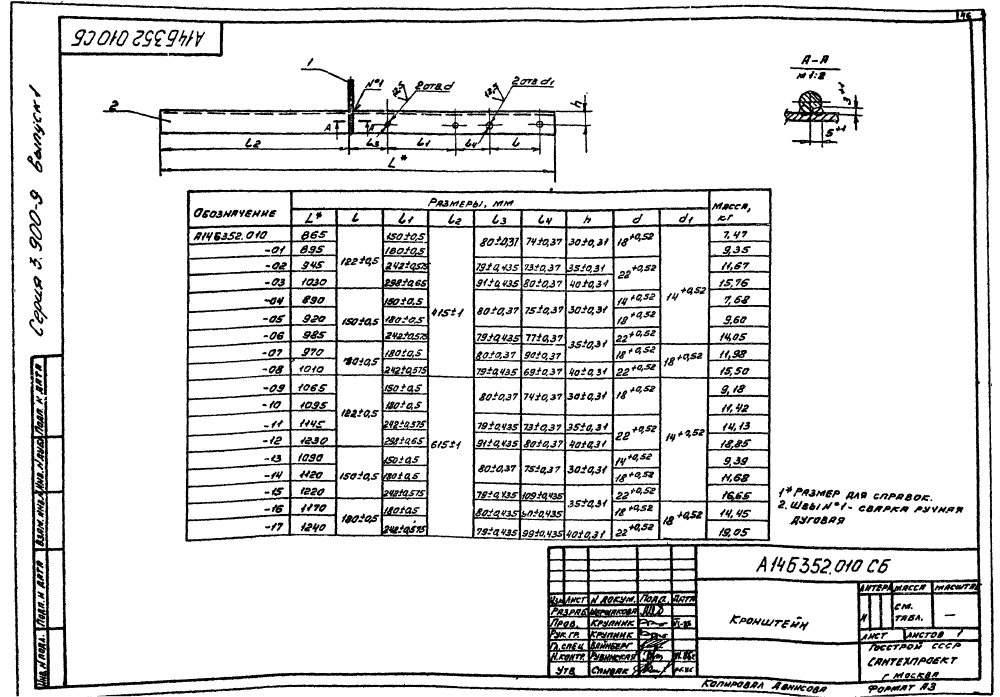 46
А14Б352.010 СБ
Серия 3.900-9 Выпуск 1
1
2
№1
12,5
2 отв. d
12,5
2 отв. d1
h
А
А
L2
L3
L1
L4
L
L*
А-А
М 1:2
3+1
5+1
Размеры, мм
Обозначение L* L L1 L2 L3 L4 h d d1 Масса, кг
А14Б352.010 865 122±0,5 150±0,5 415±1 80±0,37 74±0,37 30±0,31 18+0,52 14+0,52 7,47
-01 895 180±0,5 9,35
-02 945 242±0,575 79±0,435 73±0,37 35±0,31 22+0,52 11,67
-03 1030 298±0,65 91±0,435 80±0,37 40±0,31 15,76
-04 890 150±0,5 150±0,5 80±0,37 75±0,37 30±0,31 14+0,52 7,68
-05 920 180±0,5 18+0,52 9,60
-06 985 242±0,575 79±0,435 77±0,37 35±0,31 22+0,52 14,05
-07 970 180±0,5 180±0,5 80±0,37 90±0,37 18+0,52 18+0,52 11,98
-08 1010 242±0,575 79±0,435 69±0,37 40±0,31 22+0,52 15,50
-09 1065 122±0,5 150±0,5 615±1 80±0,37 74±0,37 30±0,31 18+0,52 14+0,52 9,18
-10 1095 180±0,5 11,42
-11 1145 242±0,575 79±0,435 73±0,37 35±0,31 22+0,52 14,13
-12 1230 298±0,65 91±0,435 80±0,37 40±0,31 18,85
-13 1090 150±0,5 150±0,5 80±0,37 75±0,37 30±0,31 14+0,52 9,39
-14 1120 180±0,5 18+0,52 11,68
-15 1220 242±0,575 79±0,435 109±0,435 35±0,31 22+0,52 16,65
-16 1170 180±0,5 180±0,5 80±0,435 18+0,52 18+0,52 14,45
-17 1240 242±0,575 79±0,435 99±0,435 40±0,31 22+0,52 19,05
1* Размер для справок.
2. Швы №1 - сварка ручная
дуговая
А14Б352.010 СБ
Кронштейн
Литера Масса Масштаб
И См. табл. —
Лист Листов 1
Госстрой СССР
Сантехпроект
г. Москва
Изм Лист № докум. Подп. Дата
Разраб.
Пров. Крупник
Рук. гр. Крупник
Гл. спец. Вайнберг
Н. контр. Рувинская
Утв. Спивак
Копировал Денисова
Формат А3
Инв. № подл. Подп. и дата Взам. инв. № Инв. № дубл. Подп. и дата